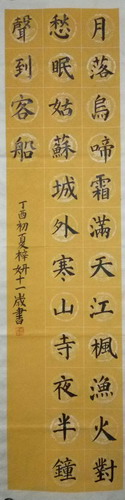 月落烏啼霜滿天江楓漁火對
愁眠姑蘇城外寒山寺夜半鐘
聲到客船
丁酉初夏梓妍十一歲書